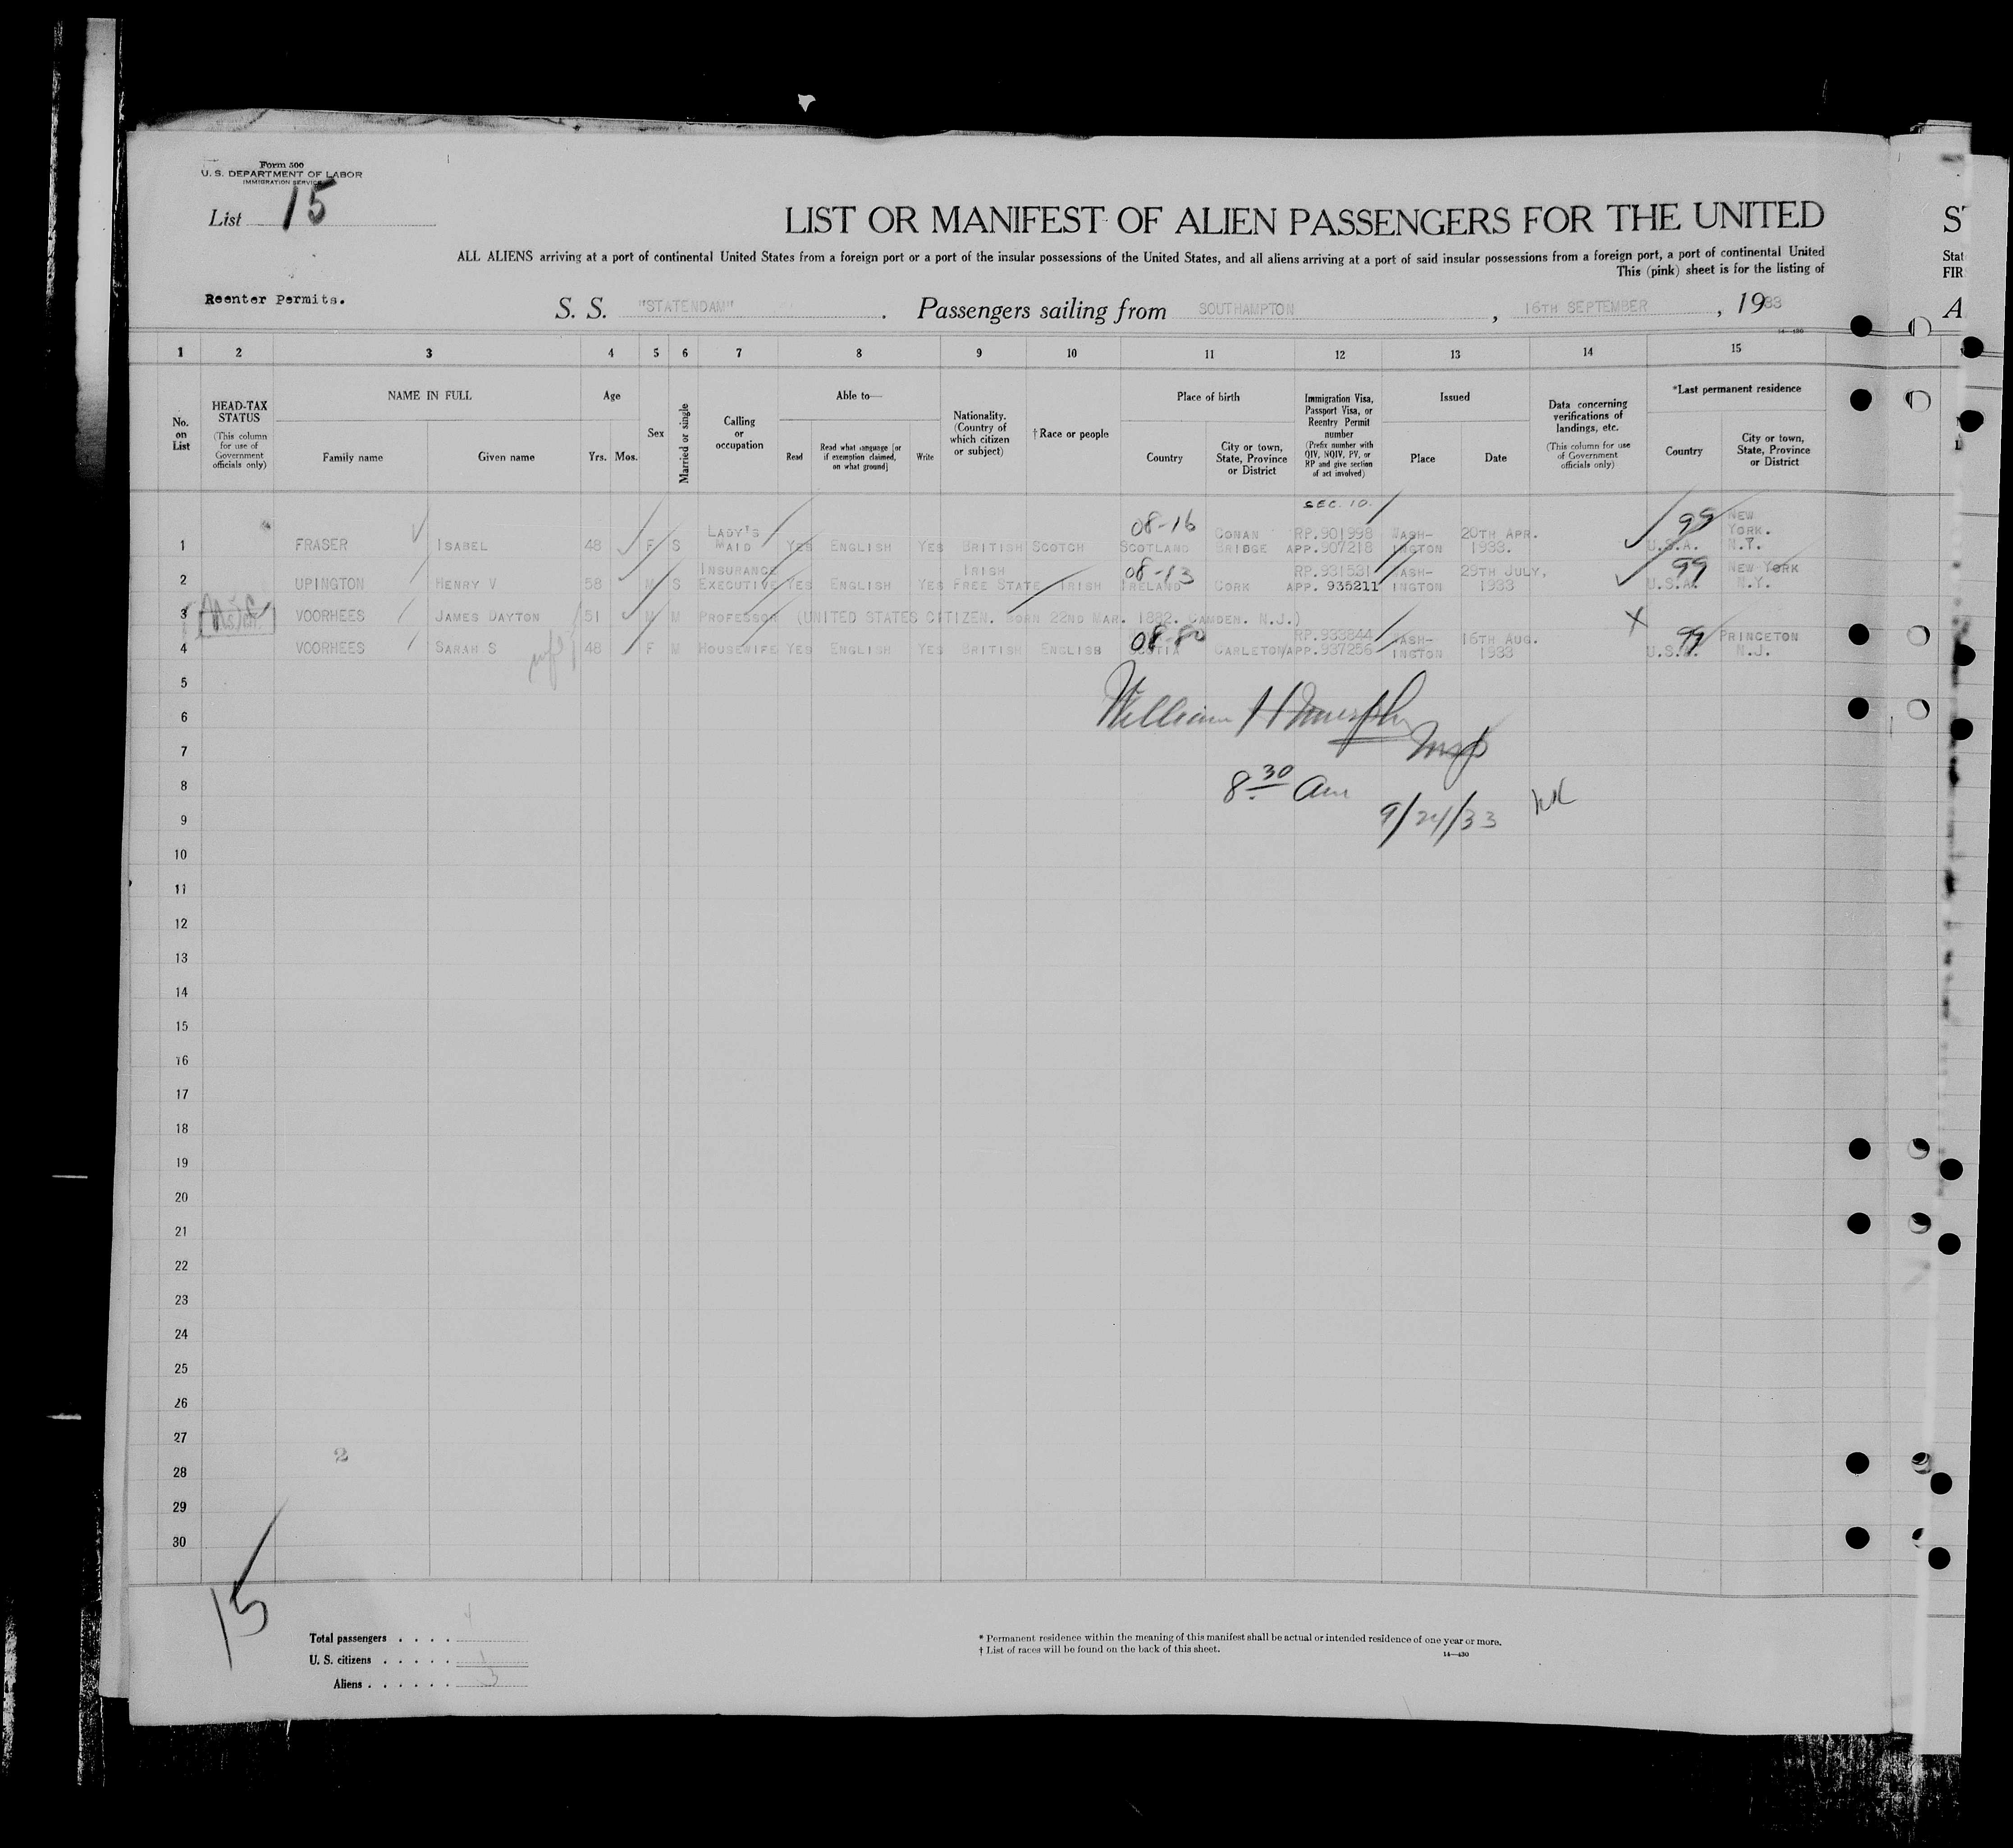 Form 500
U. S. DEPARTMENT OF LABOR
IMMIGRATION SERVICE
List 15
LIST OR MANIFEST OF ALIEN PASSENGERS FOR THE UNITED
ALL ALIENS arriving at a port of continental United States from a foreign port or a port of the insular possessions of the United States, and all aliens arriving at a port of said insular possessions from a foreign port, a port of continental United
This (pink) sheet is for the listing of
Reenter Permits.
S. S. "STATENDAM" . Passengers sailing from SOUTHAMPTON , 16TH SEPTEMBER , 1933
14—430
1 2 3 4 5 6 7 8 9 10 11 12 13 14 15
No. on List
HEAD-TAX STATUS
(This column for use of Government officials only)
NAME IN FULL
Family name Given name
Age
Yrs. Mos.
Sex
Married or single
Calling or occupation
Able to—
Read Read what language [or if exemption claimed, on what ground] Write
Nationality. (Country of which citizen or subject)
†Race or people
Place of birth
Country City or town, State, Province or District
Immigration Visa, Passport Visa, or Reentry Permit number
(Prefix number with QIV, NQIV, PV, or RP and give section of act involved)
Issued
Place Date
Data concerning verifications of landings, etc.
(This column for use of Government officials only)
*Last permanent residence
Country City or town, State, Province or District
SEC. 10.
1 FRASER ISABEL 48 F S LADY'S MAID YES ENGLISH YES BRITISH SCOTCH 08-16 SCOTLAND CONAN BRIDGE RP.901998 APP.907218 WASH-INGTON 20TH APR. 1933. 99 U.S.A. NEW YORK. N.Y.
2 UPINGTON HENRY V 58 M S INSURANCE EXECUTIVE YES ENGLISH YES IRISH FREE STATE IRISH 08-13 IRELAND CORK RP.931531 APP. 935211 WASH-INGTON 29TH JULY, 1933 99 U.S.A. NEW YORK N.Y.
3 VOORHEES JAMES DAYTON 51 M M PROFESSOR (UNITED STATES CITIZEN. BORN 22ND MAR. 1882. CAMDEN. N.J.) X
4 VOORHEES SARAH S 48 F M HOUSEWIFE YES ENGLISH YES BRITISH ENGLISH 08-80 SCOTIA CARLETON RP.933844 APP.937256 WASH-INGTON 16TH AUG. 1933 99 U.S.A. PRINCETON N.J.
5
6 William H Murphy
7 Insp
8 8.30 Am
9 9/24/33
10
11
12
13
14
15
16
17
18
19
20
21
22
23
24
25
26
27
2
28
29
30
15
Total passengers . . . . 4
U. S. citizens . . . . . 1
Aliens . . . . . . 3
* Permanent residence within the meaning of this manifest shall be actual or intended residence of one year or more.
† List of races will be found on the back of this sheet.
14—430